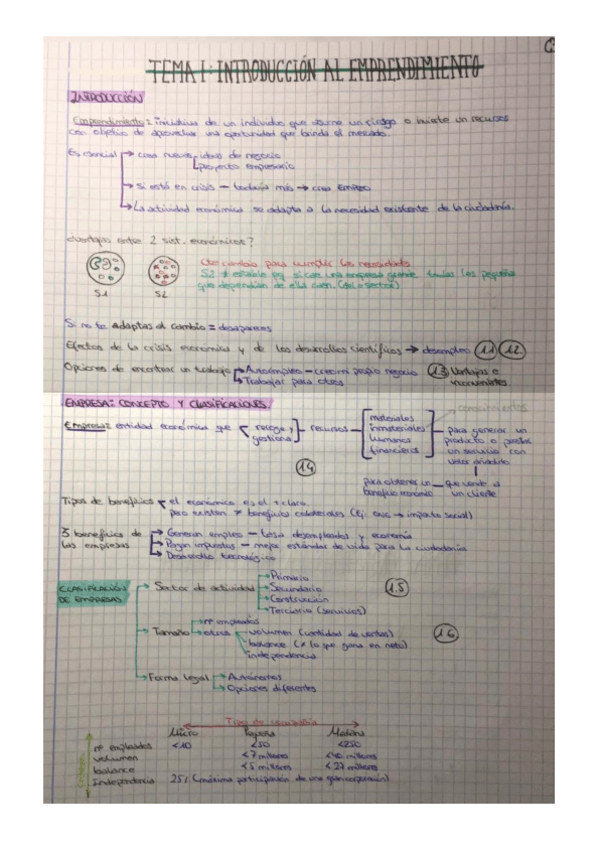 TEMA 1: INTRODUCCIÓN AL EMPRENDIMIENTO
INTRODUCCIÓN
Emprendimiento: iniciativa de un individuo que asume un riesgo o invierte un recursos
con objetivo de aprovechar una oportunidad que brinda el mercado.
Es esencial → crea nuevas ideas de negocio
proyecto empresario
→ si está en crisis – todavía más → crea EMPLEO
→ La actividad económica se adapta a la necesidad existente de la ciudadanía.
¿Ventajas entre 2 sist. económicos?
cambio para cumplir las necesidades
S2 ≠ estable pq si cae una empresa grande todas las pequeñas
que dependían de ella caen. (del = sector)
S1 S2
Si no te adaptas al cambio = desapareces
Efectos de la crisis económica y de los desarrollos científicos → desempleo 1.1 1.2.
Opciones de encontrar un trabajo → Autoempleo – crear mi propio negocio 1.3 Ventajas e
→ Trabajar para otros inconvenientes
EMPRESA: CONCEPTO Y CLASIFICACIONES.
conocimientos
Empresa: entidad económica que recoge y gestiona recursos
materiales
inmateriales
humanos
financieros
para generar un
producto o prestar
un servicio con
valor añadido
1.4
para obtener un — que vende a
beneficio económico un cliente
Tipos de beneficios • el económico es el + claro.
pero existen ≠ beneficios colaterales (Ej: ONG → impacto social)
3 beneficios de las empresas
→ Generan empleo – tasa desempleados y economía
→ Pagan impuestos – mejor estándar de vida para la ciudadanía
→ Desarrollo tecnológico
CLASIFICACIÓN DE EMPRESAS
→ Sector de actividad
→ Primario
→ Secundario
→ Construcción
→ Terciario (servicios)
1.5
→ Tamaño
→ nº empleados
→ otros
volumen (cantidad de ventas)
balance (x lo que gana en neto)
independencia
1.6
→ Forma legal → Autónomos
→ Opciones diferentes
Tipo de compañía
Micro Pequeña Mediana
nº empleados <10 <50 <250
volumen <7 millones <40 millones
balance <5 millones <27 millones
Independencia 25% (máxima participación de una gran corporación)